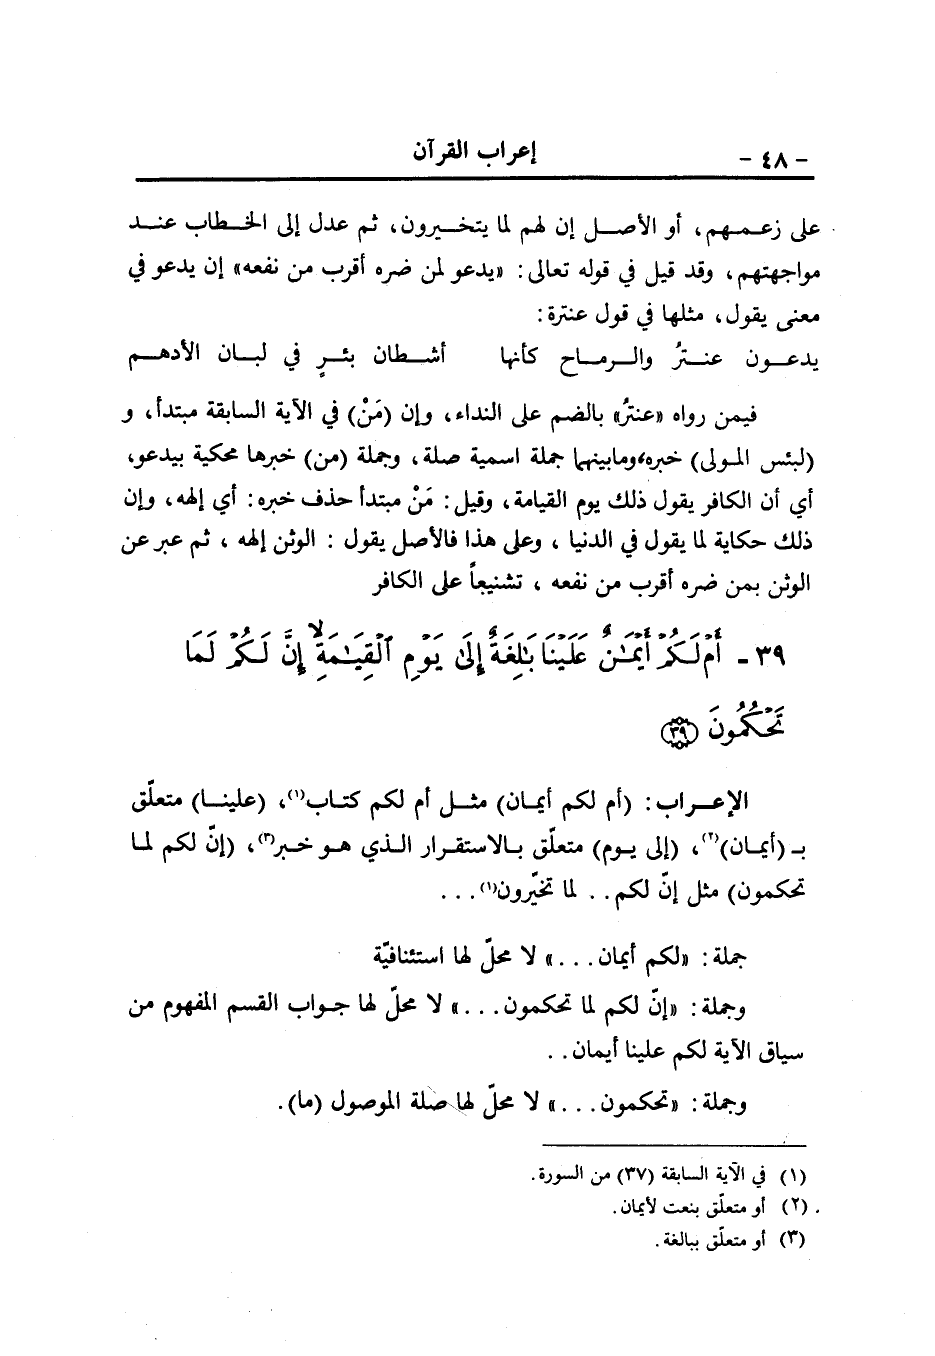 - ٤٨ - إعراب القرآن
على زعمهم، أو الأصل إن لهم لما يتخيرون، ثم عدل إلى الخطاب عند
مواجهتهم، وقد قيل في قوله تعالى: «يدعو لمن ضره أقرب من نفعه» إن يدعو في
معنى يقول، مثلها في قول عنترة:
يدعون عنترُ والرماح كأنها أشطان بئرٍ في لبان الأدهم
فيمن رواه «عنترُ» بالضم على النداء، وإن (مَنْ) في الآية السابقة مبتدأ، و
(لبئس المولى) خبره، ومابينهما جملة اسمية صلة، وجملة (من) خبرها محكية بيدعو،
أي أن الكافر يقول ذلك يوم القيامة، وقيل: مَنْ مبتدأ حذف خبره: أي إلهه، وإن
ذلك حكاية لما يقول في الدنيا، وعلى هذا فالأصل يقول: الوثن إلهه، ثم عبر عن
الوثن بمن ضره أقرب من نفعه، تشنيعاً على الكافر
٣٩ - أَمْ لَكُمْ أَيْمَٰنٌ عَلَيْنَا بَٰلِغَةٌ إِلَىٰ يَوْمِ ٱلْقِيَٰمَةِ ۙ إِنَّ لَكُمْ لَمَا
تَحْكُمُونَ ﴿٣٩﴾
الإعراب: (أم لكم أيمان) مثل أم لكم كتاب(١)، (علينا) متعلّق
بـ (أيمان)(٢)، (إلى يوم) متعلّق بالاستقرار الذي هو خبر(٣)، (إنّ لكم لما
تحكمون) مثل إنّ لكم.. لما تخيّرون(١)...
جملة: «لكم أيمان...» لا محلّ لها استئنافيّة
وجملة: «إنّ لكم لما تحكمون...» لا محلّ لها جواب القسم المفهوم من
سياق الآية لكم علينا أيمان..
وجملة: «تحكمون...» لا محلّ لها صلة الموصول (ما).
(١) في الآية السابقة (٣٧) من السورة.
(٢) أو متعلّق بنعت لأيمان.
(٣) أو متعلّق ببالغة.